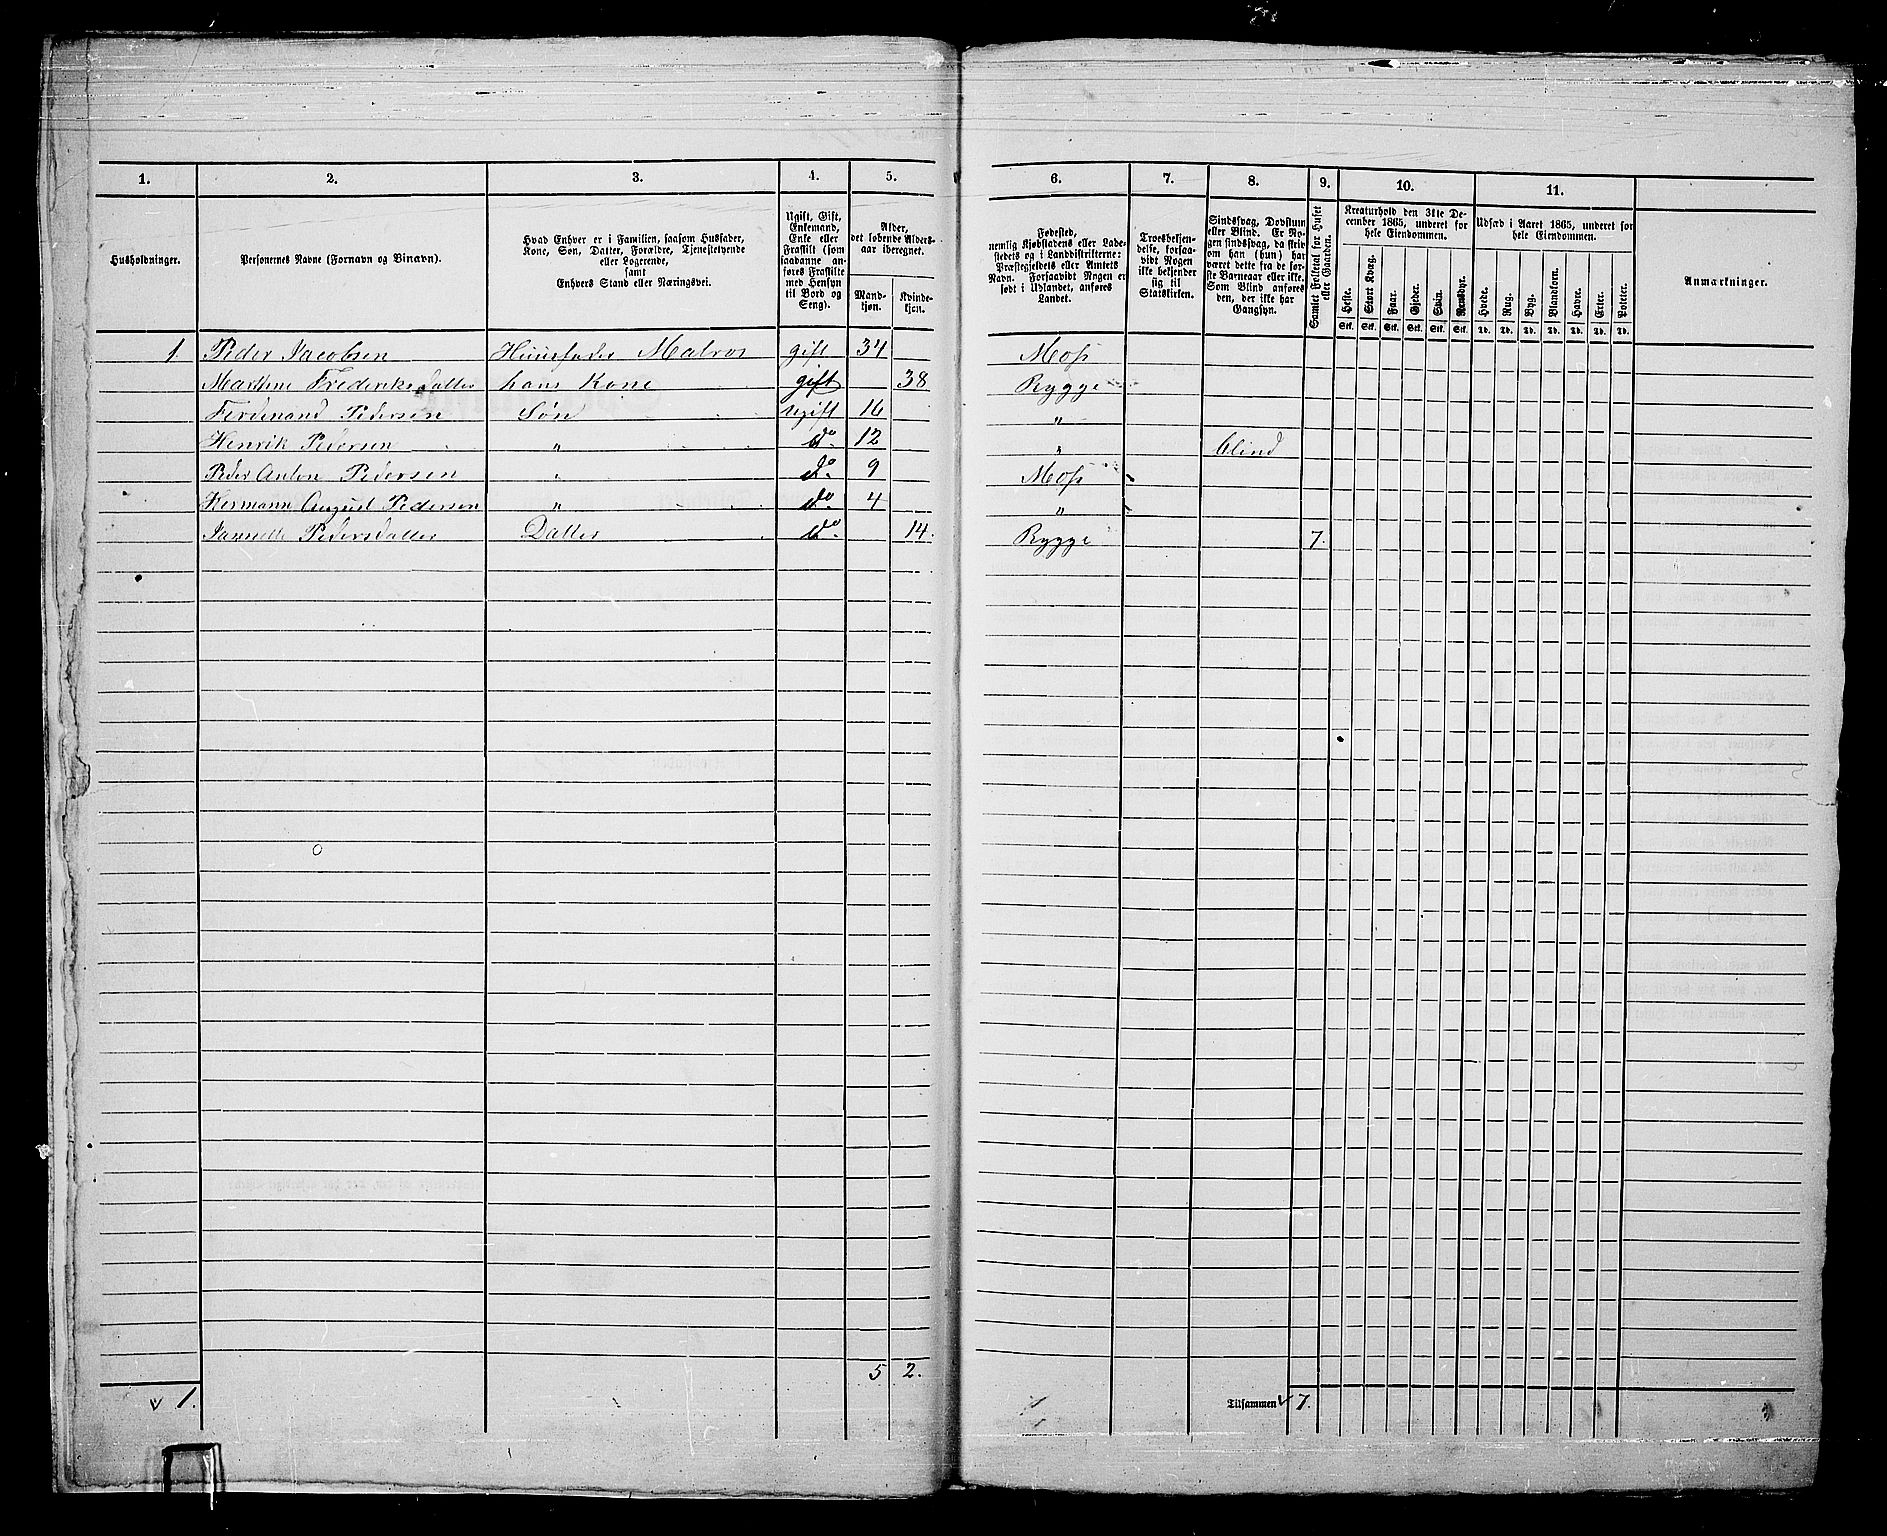 1. 2. 3. 4. 5. 6. 7. 8. 9. 10. 11.
Husholdninger.
Personernes Navne (Fornavn og Binavn).
Hvad Enhver er i Familien, saasom Husfader,
Kone, Søn, Datter, Forældre, Tjenestetyende
eller Logerende,
samt
Enhvers Stand eller Næringsvei.
Ugift, Gift,
Enkemand,
Enke eller
Fraskilt (som
saadanne an-
føres Fraskilte
med Hensyn
til Bord og
Seng).
Alder,
det løbende Alders-
aar iberegnet.
Mand-
kjøn.
Kvinde-
kjøn.
Fødested,
nemlig Kjøbstadens eller Lade-
stedets og i Landdistrikterne:
Præstegjeldets eller Amtets
Navn. Forsaavidt Nogen er
født i Udlandet, anføres
Landet.
Troesbekjen-
delse, forsaa-
vidt Nogen
ikke bekjender
sig til
Statskirken.
Sindssvag, Døvstum
eller Blind. Er No-
gen sindssvag, da skriv
om han (hun) har
været dette fra de før-
ste Barneaar eller ikke.
Som Blind anføres
den, der ikke har
Gangsyn.
Samlet Folketal for Huset
eller Gaarden.
Kreaturhold den 31te De-
cember 1865, underet for
hele Eiendommen.
Heste. Stort Kvæg. Faar. Gjeder. Svin. Rensdyr.
Stk. Stk. Stk. Stk. Stk. Stk.
Udsæd i Aaret 1865, underet for
hele Eiendommen.
Hvede. Rug. Byg. Blandkorn. Havre. Erter. Poteter.
Td. Td. Td. Td. Td. Td. Td.
Anmærkninger.
1. Peder Jacobsen Huusfader Matros gift 34 Moss
Marthine Frederiksdatter hans Kone gift 38 Rygge
Ferdinand Pedersen Søn ugift 16 "
Henrik Pedersen " do. 12 " blind
Peder Anton Pedersen " do. 9 Moss
Hermann August Pedersen " do. 4 "
Jannette Pedersdatter Datter do. 14. Rygge 7.
5 2.
v 1. Tilsammen v 7.